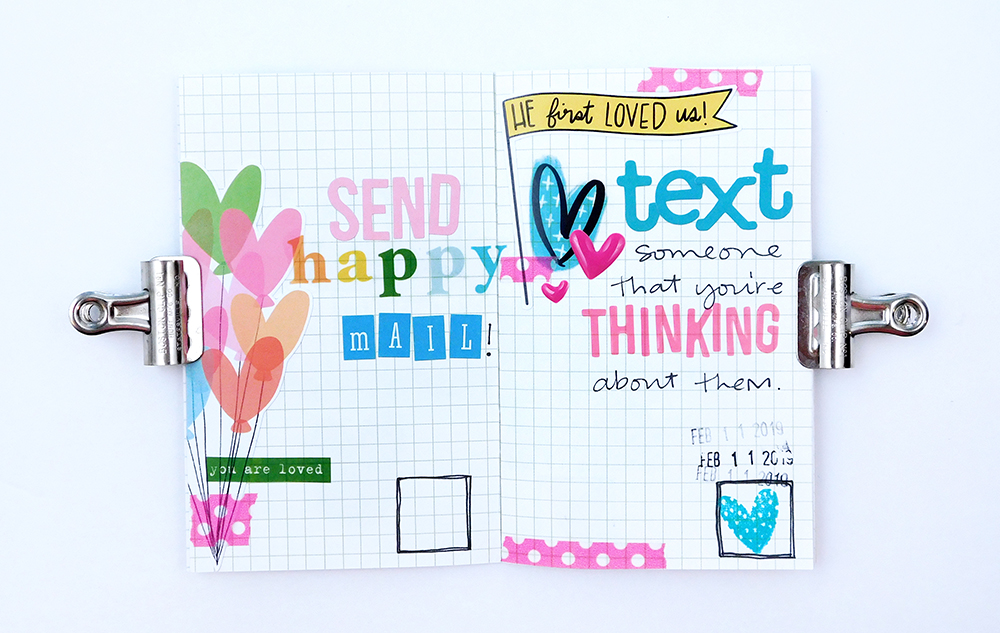 SEND
happy.
mAIL!
you are loved
HE first LOVED us!
text
someone
that you're
THINKING
about them.
FEB 1 1 2019
FEB 1 1 2019
FEB 1 1 2019